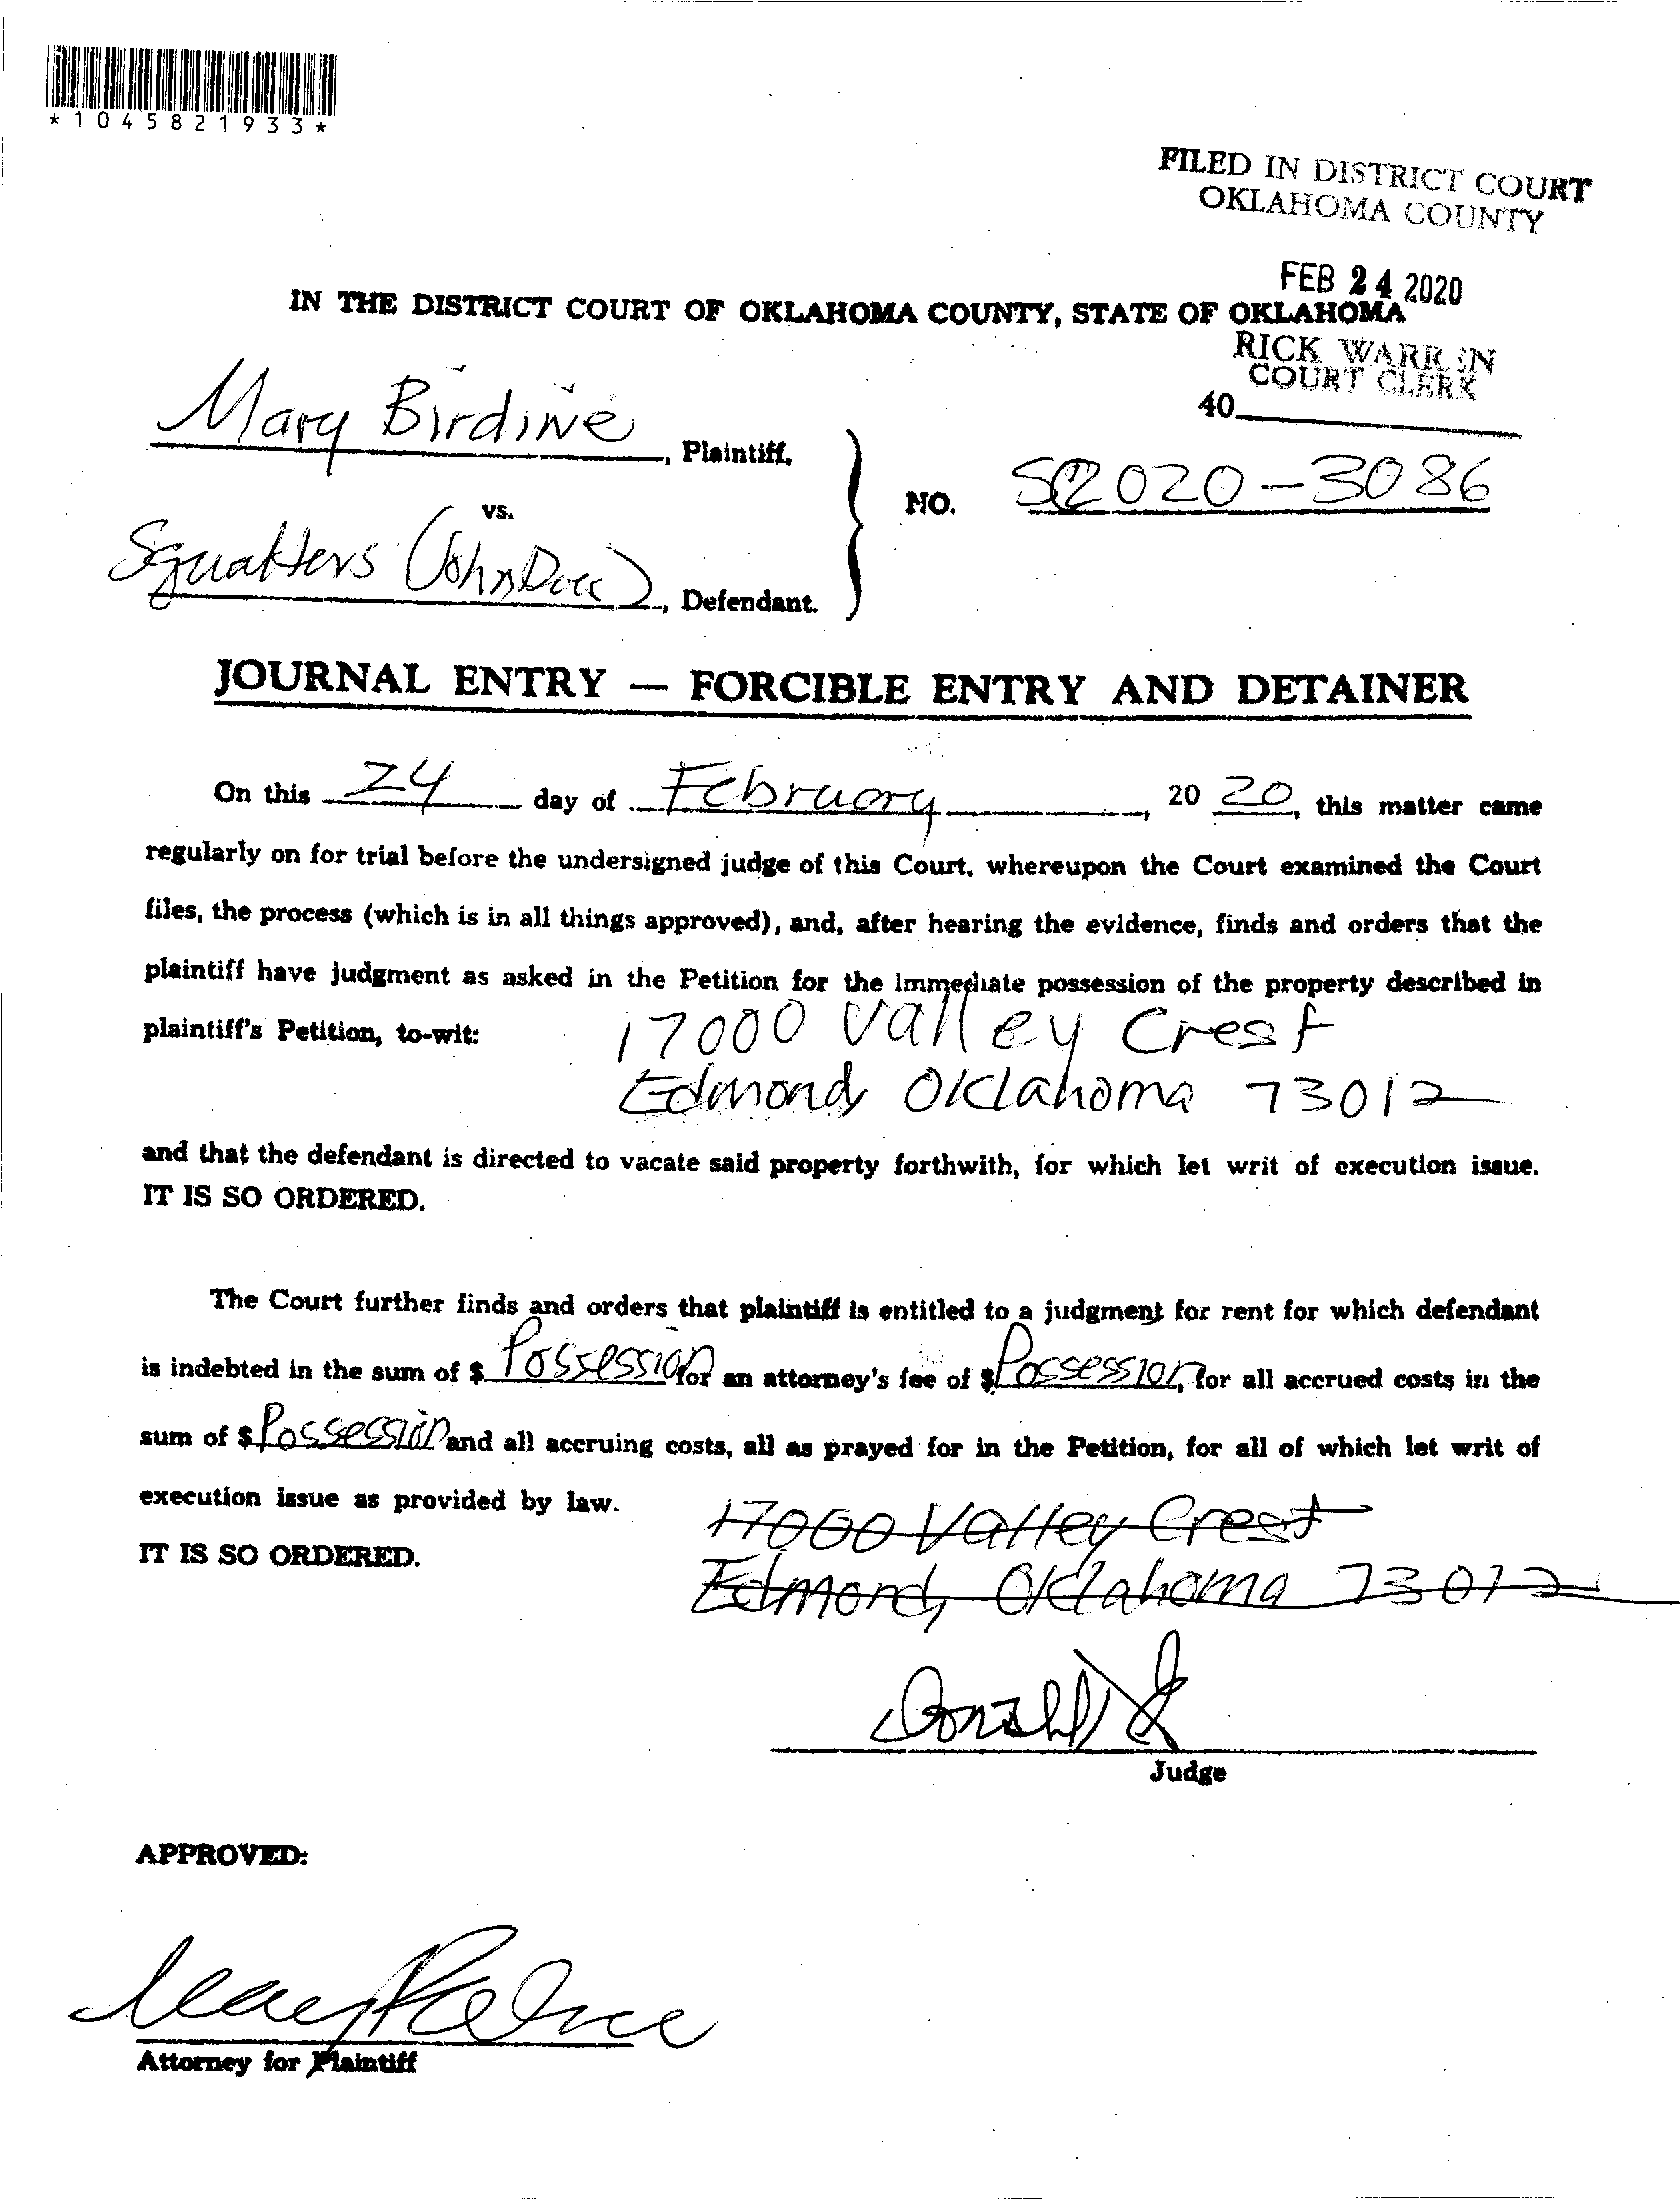 *1045821933*
FILED IN DISTRICT COURT
OKLAHOMA COUNTY
FEB 24 2020
IN THE DISTRICT COURT OF OKLAHOMA COUNTY, STATE OF OKLAHOMA
RICK WARREN
COURT CLERK
40
Mary Birdine, Plaintiff,
vs.
NO. SC2020-3086
Squatters (John Doe), Defendant.
JOURNAL ENTRY — FORCIBLE ENTRY AND DETAINER
On this 24 day of February, 20 20, this matter came
regularly on for trial before the undersigned judge of this Court, whereupon the Court examined the Court
files, the process (which is in all things approved), and, after hearing the evidence, finds and orders that the
plaintiff have judgment as asked in the Petition for the immediate possession of the property described in
plaintiff's Petition, to-wit: 17000 Valley Crest
Edmond, Oklahoma 73012
and that the defendant is directed to vacate said property forthwith, for which let writ of execution issue.
IT IS SO ORDERED.
The Court further finds and orders that plaintiff is entitled to a judgment for rent for which defendant
is indebted in the sum of $ Possession for an attorney's fee of $ Possession, for all accrued costs in the
sum of $ Possession and all accruing costs, all as prayed for in the Petition, for all of which let writ of
execution issue as provided by law.
17000 Valley Crest
IT IS SO ORDERED.
Edmond, Oklahoma 73012
Judge
APPROVED:
Attorney for Plaintiff